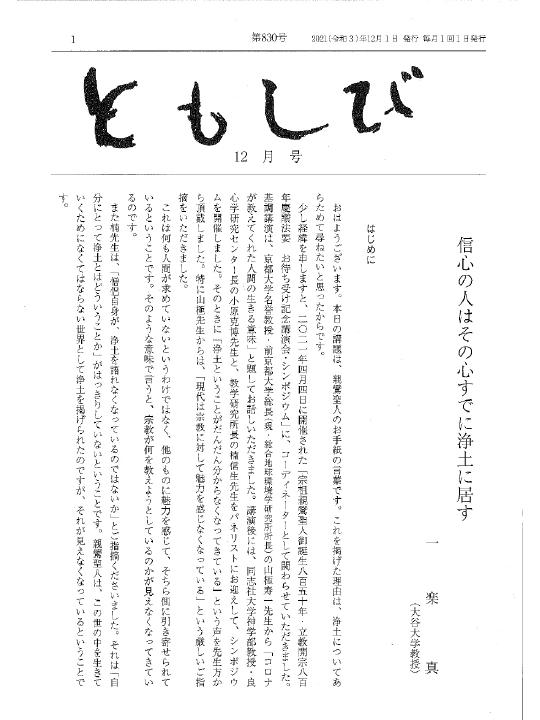 1
第830号
2021(令和3)年12月1日 発行 毎月1回1日発行
ともしび
12月号
信心の人はその心すでに浄土に居す
一楽 真
(大谷大学教授)
はじめに
おはようございます。本日の講題は、親鸞聖人のお手紙の言葉です。これを掲げた理由は、浄土についてあ
らためて尋ねたいと思ったからです。
少し経緯を申しますと、二〇二一年四月四日に開催された「宗祖親鸞聖人御誕生八百五十年・立教開宗八百
年慶讃法要 お待ち受け記念講演会・シンポジウム」に、コーディネーターとして関わらせていただきました。
基調講演は、京都大学名誉教授・前京都大学総長(現・総合地球環境学研究所所長)の山極寿一先生から「コロナ
が教えてくれた人間の生きる意味」と題してお話しいただきました。講演後には、同志社大学神学部教授・良
心学研究センター長の小原克博先生と、教学研究所長の楠信生先生をパネリストにお迎えして、シンポジウ
ムを開催しました。そのときに「浄土ということがだんだん分からなくなってきている」という声を先生方か
ら頂戴しました。特に山極先生からは、「現代は宗教に対して魅力を感じなくなっている」という厳しいご指
摘をいただきました。
これは何も人間が求めていないというわけではなく、他のものに魅力を感じて、そちら側に引き寄せられて
いるということです。そのような意味で言うと、宗教が何を教えようとしているのかが見えなくなってきてい
るのです。
また楠先生は、「僧侶自身が、浄土を語れなくなっているのではないか」とご指摘くださいました。それは「自
分にとって浄土とはどういうことか」がはっきりしていないということです。親鸞聖人は、この世の中を生きて
いくためになくてはならない世界として浄土を掲げられたのですが、それが見えなくなっているということで
す。